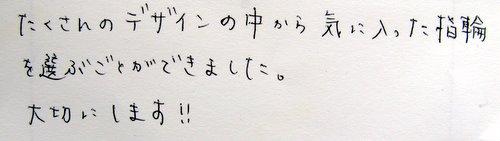 たくさんのデザインの中から気に入った指輪
を選ぶごとができました。
大切にします!!